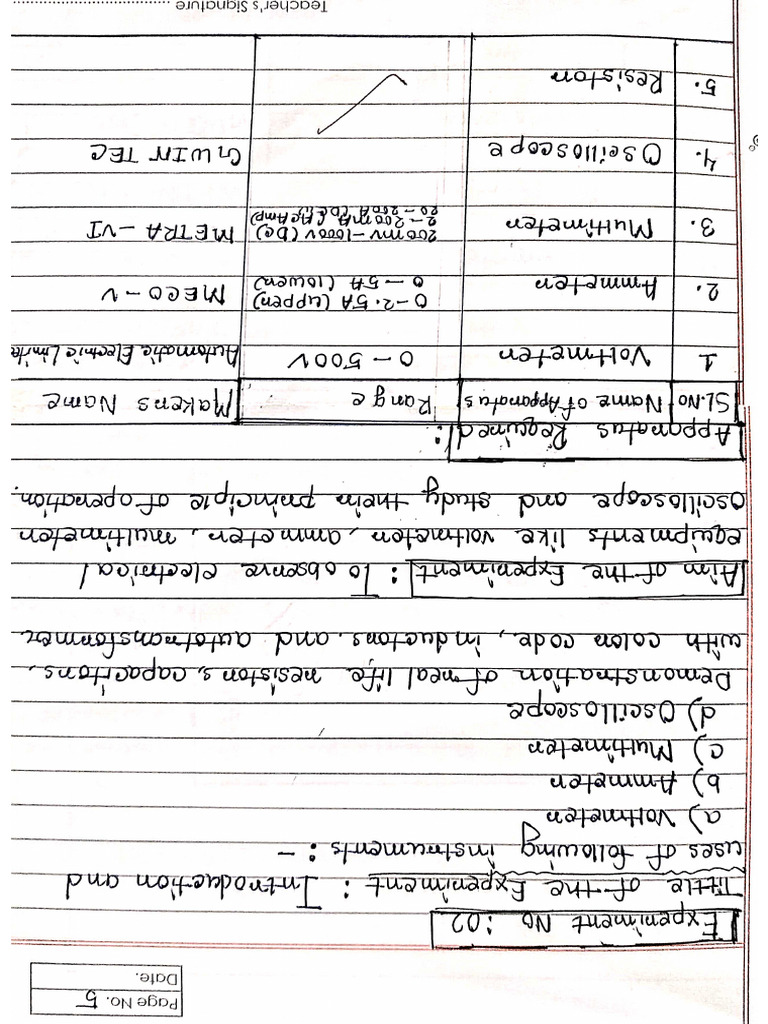 Page No. 5
Date.
Experiment No :02
Tittle of the Experiment : Introduction and
uses of following instruments :-
a) Voltmeter
b) Ammeter
c) Multimeter
d) Oscilloscope
Demonstration of real life resistors, capacitors,
with color code, inductors and autotransformer
Aim of the Experiment : To observe electrical
equipments like voltmeter, ammeter, multimeter
oscilloscope and study their principle of operation.
Apparatus Required :
SL.No Name of Apparatus Range Makers Name
1 Voltmeter 0-500V Automatic Electric Limite
2. Ammeter 0-2.5A (upper) MECO-V
0-5A (lower)
3. Multimeter 200mv-1000V (DC) METRA-VI
2-200mA (DC & Ac Amp)
20-200A
4. Oscilloscope GWIN TEC
5. Resistor
Teacher's Signature